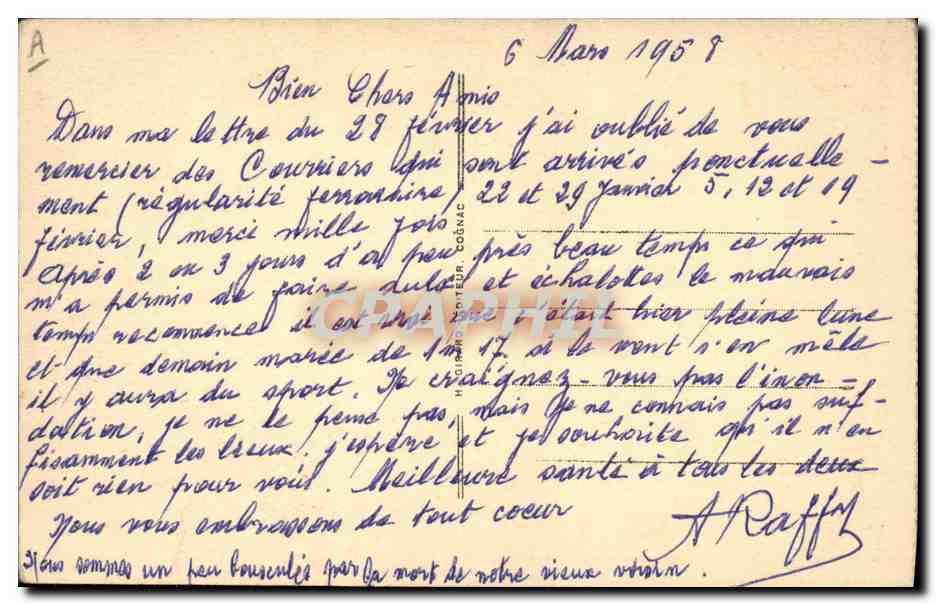 A
6 Mars 1958
Bien Chers Amis
Dans ma lettre du 28 février j'ai oublié de vous
remercier des Courriers qui sont arrivés ponctuelle-
ment (régularité ferroviaire, 22 et 29 Janvier 5, 12 et 19
février, merci mille fois
Après 2 ou 3 jours d'à peu près beau temps ce qui
m'a permis de faire et échalottes le mauvais
temps recommence il est vrai que c'était hier pleine lune
et que demain marée de 1m17, si le vent s'en mêle
il y aura du sport. Ne craignez-vous pas l'inon-
dation, je ne le pense pas, mais je ne connais pas suf-
fisamment les lieux, j'espère, et je souhaite qu'il n'en
soit rien pour vous. Meilleure santé à tous les deux
Nous vous embrassons de tout coeur
A Raffy
Nous sommes un peu bousculés par la mort de notre vieux voisin.
H. GIRARD, EDITEUR, COGNAC
CRAPHIL